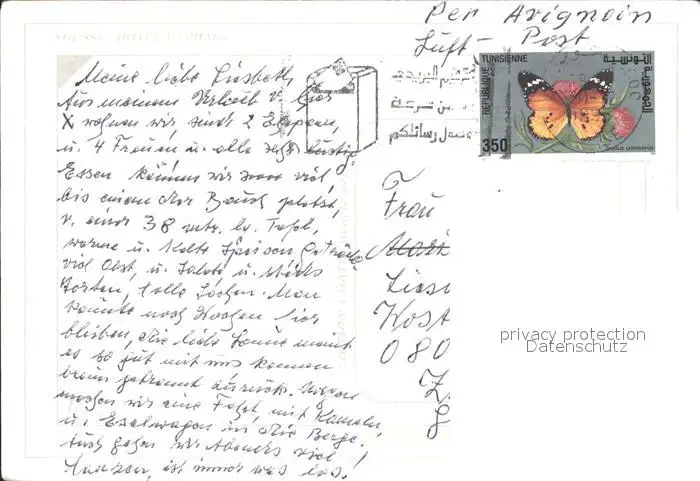 Per Avignoin
Luft - Post
Meine liebe Liesbeth,
Aus meinem Urlaub v. hier
X wohnen wir, sind 2 Ehepaare,
u. 4 Frauen u. alle sehr lustig
Essen können wir so viel,
bis einem der Bauch platzt,
v. einer 38 mtr. lg. Tafel,
warme u. Kalte Speisen Getränke
viel Obst, u. Salate u. stets
Torten, tolle Sachen. Man
könnte noch Wochen hier
bleiben, die liebe Sonne meint
es so gut mit uns kommen
braun gebrannt zurück. Morgen
machen wir eine Fahrt mit Kamelen,
u. Eselwagen in die Berge.
Auch gehen wir Abends viel
tanzen, ist immer was los!
REPUBLIQUE TUNISIENNE
الجمهورية التونسية
350
Frau
Liesl
Wost
080
Z.
privacy protection
Datenschutz